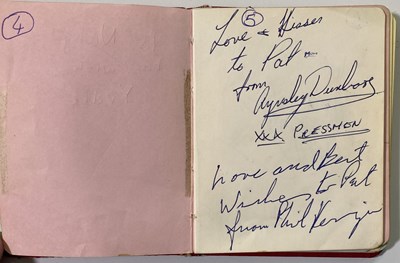 4
5
Love & Kisses
to Pat -
from
Aynsley Dunbar
xxx PRESSMEN
Love and Best
Wishes to Pat
from Phil